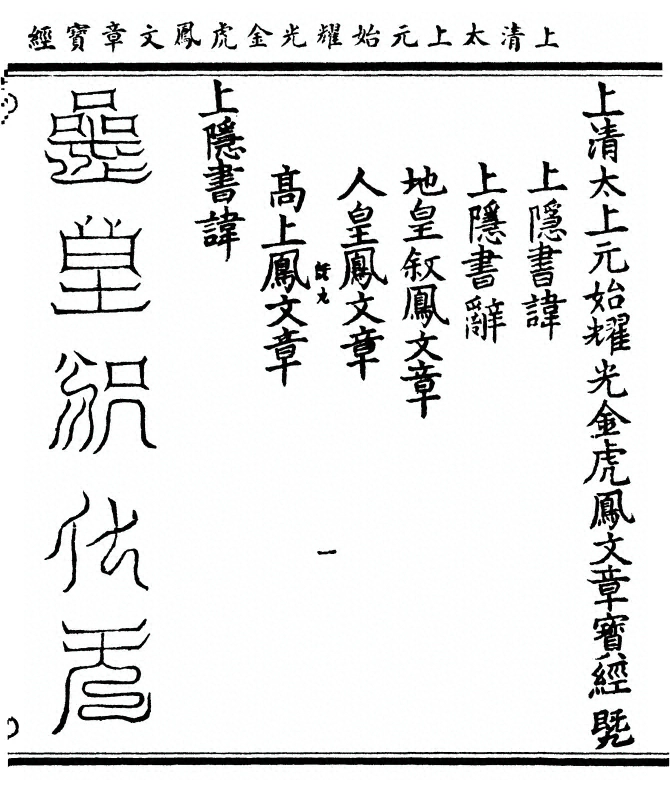 上清太上元始耀光金虎鳳文章寶經
上清太上元始耀光金虎鳳文章寶經 既
上隱書諱
上隱書辭
地皇叙鳳文章
人皇鳳文章
既九
一
高上鳳文章
上隱書諱